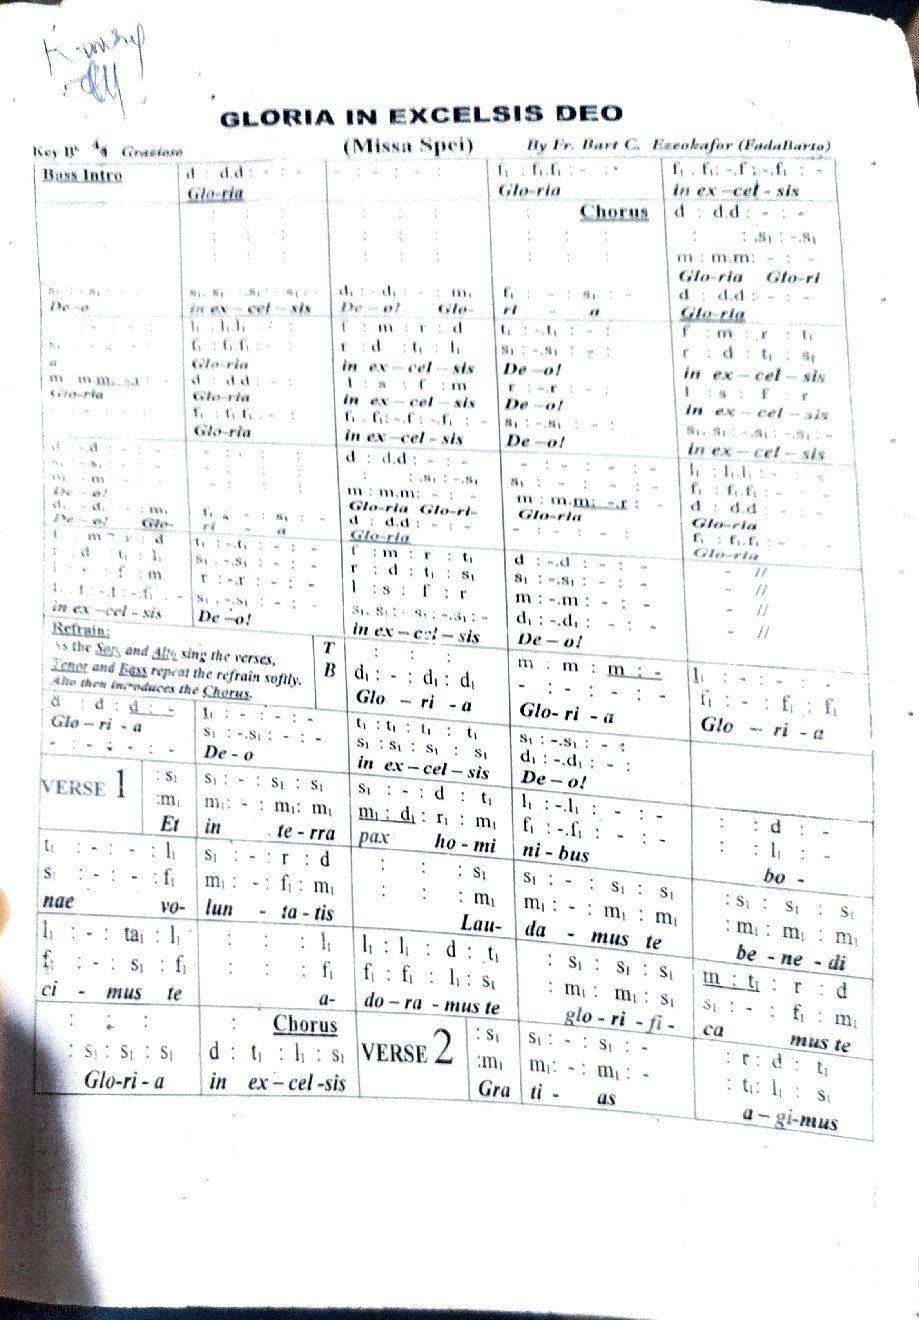 GLORIA IN EXCELSIS DEO
(Missa Spei)
Key Bb 4/4 Grazioso
By Fr. Bart C. Ezeokafor (FadaBarto)
Bass Intro
d : d.d : - : -
- : - : - : -
f₁ : f₁.f₁ : - : -
f₁ . f₁ : -.f : -.f₁ : -
Gloria
Glo-ria
in ex –cel - sis
Chorus
d : d.d : - : -
: : .s₁ : -.s₁
m : m.m: - : -
Glo-ria Glo-ri
s₁ : - s₁ : - : -
s₁. s₁ : -.s₁ : -.s₁ : -
d₁ : -d₁ : - : m₁
f₁ : - : s₁ : -
d : d.d : - : -
De –o
in ex – cel – sis
De – o! Glo-
ri - a
Glo-ria
l₁ : l₁.l₁ : - : -
f : m : r : d
t₁ : -.t₁ : - : -
f : m : r : t₁
f₁ : f₁.f₁ : - : -
r : d : t₁ : l₁
s₁ : -.s₁ : - : -
r : d : t₁ : s₁
a
Glo-ria
in ex – cel – sis
De –o!
in ex – cel – sis
m m.m: -.r : -
d : d.d : - : -
l : s : f : m
r : -.r : - : -
l : s : f : r
Glo-ria
Glo-ria
in ex – cel – sis
De –o!
in ex – cel – sis
f₁ : f₁.f₁ : - : -
f₁. f₁: -.f : -.f₁ : -
s₁ : -.s₁ : - : -
s₁. s₁ : -.s₁ : -.s₁ : -
Glo-ria
in ex –cel - sis
De –o!
in ex – cel – sis
d : d.d : - : -
- : - : - : -
l₁ : l₁.l₁ : - : -
: : .s₁ : -.s₁
s₁ : - : - : -
f₁ : f₁.f₁ : - : -
m : m.m: - : -
m : m.m: -.r :
d : d.d : - : -
De – o!
Glo-ria Glo-ri-
Glo-ria
Glo-ria
d₁ - d₁ : - : m₁
f₁ : - : s₁ : -
d : d.d : - : -
- : - : - : -
f₁ : f₁.f₁ : - : -
De – o! Glo-
ri - a
Glo-ria
Glo-ria
f : m : r : d
t₁ : -.t₁ : - : -
f : m : r : t₁
d : -.d : - : -
- //
r : d : t₁ : l₁
s₁ : -.s₁ : - : -
r : d : t₁ : s₁
s₁ : -.s₁ : - : -
- //
r : -.r : - : -
l : s : f : r
m : -.m : - : -
- //
s₁ : -.s₁ : - : -
s₁. s₁ : - s₁ : -.s₁ : -
d₁ : -.d₁ : - : -
- //
in ex –cel - sis
De –o!
in ex – cel – sis
De – o!
Refrain:
As the Sop. and Alto sing the verses,
Tenor and Bass repeat the refrain softly.
Also then introduces the Chorus.
T
B
: : :
m : m : m : -
l₁ : - : - : -
d₁ : - : d₁ : d₁
- : - : - : -
f₁ : - : f₁ : f₁
Glo – ri - a
Glo- ri - a
Glo – ri - a
d : d : d : -
l₁ : - : - : -
t₁ : t₁ : t₁ : t₁
s₁ : -.s₁ : - :
Glo – ri – a
s₁ : -.s₁ : - : -
s₁ : s₁ : s₁ : s₁
d₁ : -.d₁ : - :
- : - : - : -
De - o
in ex – cel – sis
De – o!
VERSE 1
: s₁
s₁ : - : s₁ : s₁
s₁ : - : d : t₁
l₁ : -.l₁ : - : -
: : d : -
:m₁
m₁: - : m₁: m₁
m₁ : d₁ : r₁ : m₁
f₁ : -.f₁ : - : -
: : l₁ : -
Et
in te - rra
pax ho - mi
ni - bus
bo -
t₁ : - : - : l₁
s₁ : - : r : d
: : : s₁
s₁ : - : s₁ : s₁
: s₁ : s₁ : s₁
s₁ : - : - : f₁
m₁ : - : f₁ : m₁
: : : m₁
m₁ : - : m₁ : m₁
: m₁ : m₁ : m₁
nae vo-
lun - ta - tis
Lau-
da - mus te
be - ne - di
l₁ : - : ta₁ : l₁
: : : l₁
l₁ : l₁ : d : t₁
: s₁ : s₁ : s₁
m : t₁ : r : d
f₁ : - : s₁ : f₁
: : : f₁
f₁ : f₁ : l₁ : s₁
: m₁ : m₁ : s₁
s₁ : - : f₁ : m₁
ci - mus te
a-
do – ra - mus te
glo - ri - fi -
ca mus te
: : :
: Chorus
VERSE 2
: s₁
s₁ : - : s₁ : -
: r : d : t₁
: s₁ : s₁ : s₁
d : t₁ : l₁ : s₁
:m₁
m₁: - : m₁ : -
: t₁ : l₁ : s₁
Glo-ri - a
in ex – cel -sis
Gra
ti - as
a – gi-mus